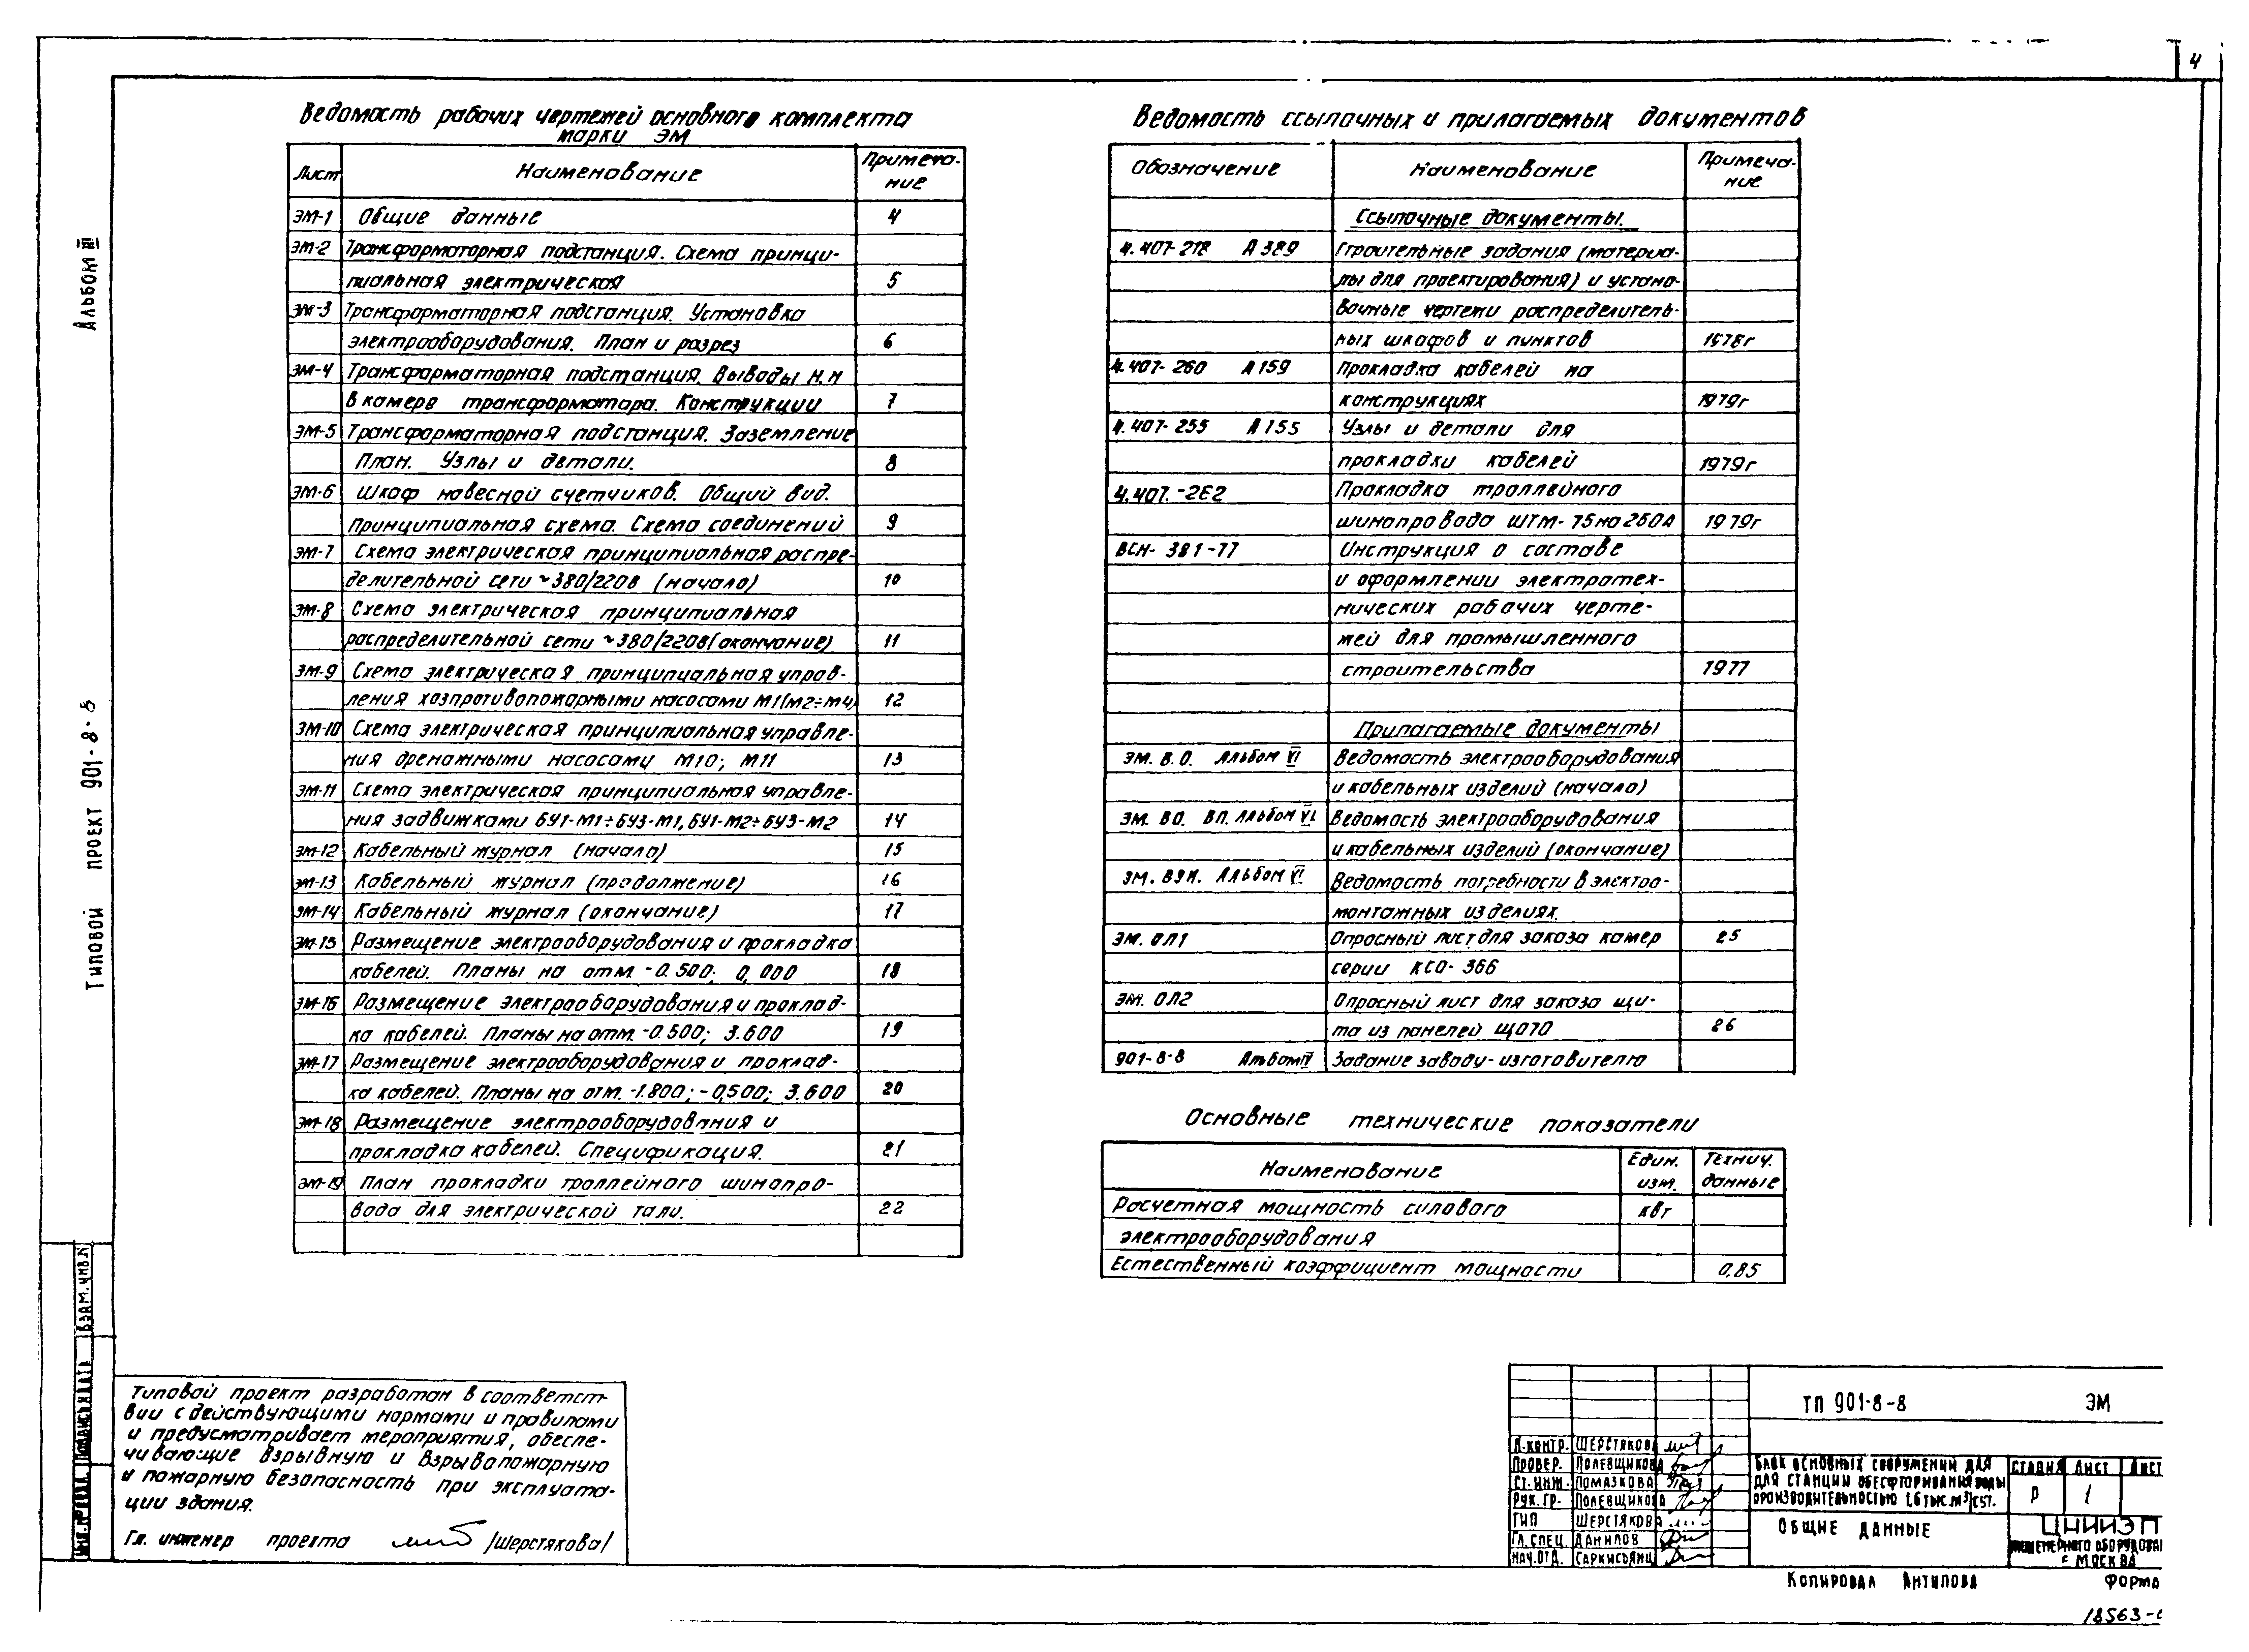 4
Альбом III
Типовой проект 901-8-8
Взам. инв. №
Подпись и дата
Инв. № подл.
Ведомость рабочих чертежей основного комплекта
марки ЭМ
Лист Наименование Примеча-
ние
ЭМ-1 Общие данные 4
ЭМ-2 Трансформаторная подстанция. Схема принци-
пиальная электрическая 5
ЭМ-3 Трансформаторная подстанция. Установка
электрооборудования. План и разрез 6
ЭМ-4 Трансформаторная подстанция. Выводы н.н
в камере трансформатора. Конструкции 7
ЭМ-5 Трансформаторная подстанция. Заземление
План. Узлы и детали. 8
ЭМ-6 Шкаф навесной счетчиков. Общий вид.
Принципиальная схема. Схема соединений 9
ЭМ-7 Схема электрическая принципиальная распре-
делительной сети ~380/220в (начало) 10
ЭМ-8 Схема электрическая принципиальная
распределительной сети ~380/220в (окончание) 11
ЭМ-9 Схема электрическая принципиальная управ-
ления хозпротивопожарными насосами М1(М2÷М4) 12
ЭМ-10 Схема электрическая принципиальная управле-
ния дренажными насосами М10; М11 13
ЭМ-11 Схема электрическая принципиальная управле-
ния задвижками БУ1-М1÷БУ3-М1, БУ1-М2÷БУ3-М2 14
ЭМ-12 Кабельный журнал (начало) 15
ЭМ-13 Кабельный журнал (продолжение) 16
ЭМ-14 Кабельный журнал (окончание) 17
ЭМ-15 Размещение электрооборудования и прокладка
кабелей. Планы на отм. -0.500; 0,000 18
ЭМ-16 Размещение электрооборудования и проклад-
ка кабелей. Планы на отм. -0.500; 3.600 19
ЭМ-17 Размещение электрооборудования и проклад-
ка кабелей. Планы на отм. -1.800; -0,500; 3.600 20
ЭМ-18 Размещение электрооборудования и
прокладка кабелей. Спецификация. 21
ЭМ-19 План прокладки троллейного шинопро-
вода для электрической тали. 22
Ведомость ссылочных и прилагаемых документов
Обозначение Наименование Примеча-
ние
Ссылочные документы.
4.407-218 А389 Строительные задания (материа-
лы для проектирования) и устано-
вочные чертежи распределитель-
ных шкафов и пунктов 1978г
4.407-260 А159 Прокладка кабелей на
конструкциях 1979г
4.407-255 А155 Узлы и детали для
прокладки кабелей 1979г
4.407.-262 Прокладка троллейного
шинопровода ШТМ-75 на 250А 1979г
ВСН-381-77 Инструкция о составе
и оформлении электротех-
нических рабочих черте-
жей для промышленного
строительства 1977
Прилагаемые документы
ЭМ. В.О. Альбом VI Ведомость электрооборудования
и кабельных изделий (начало)
ЭМ. ВО. ВП. Альбом VI Ведомость электрооборудования
и кабельных изделий (окончание)
ЭМ. ВЭИ. Альбом VI Ведомость потребности в электро-
монтажных изделиях.
ЭМ. ОЛ1 Опросный лист для заказа камер 25
серии КСО-366
ЭМ. ОЛ2 Опросный лист для заказа щи-
та из панелей ЩО70 26
901-8-8 Альбом IV Задание заводу-изготовителю
Основные технические показатели
Наименование Един.
изм. Технич.
данные
Расчетная мощность силового квт
электрооборудования
Естественный коэффициент мощности 0,85
Типовой проект разработан в соответст-
вии с действующими нормами и правилами
и предусматривает мероприятия, обеспе-
чивающие взрывную и взрывопожарную
и пожарную безопасность при эксплуата-
ции здания.
Гл. инженер проекта /Шерстякова/
ТП 901-8-8 ЭМ
Н.контр. Шерстякова
Провер. Полевщикова
Ст.инж. Помазкова
Рук.гр. Полевщикова
ГИП Шерстякова
Гл.спец. Данилов
Нач.отд. Саркисьянц
Блок основных сооружений для
для станции обесфторивания воды
производительностью 1,6 тыс.м³/сут.
Стадия Лист Лист
Р 1
Общие данные
ЦНИИЭП
инженерного оборудова
г. Москва
Копировал Антипова Форма
18563-